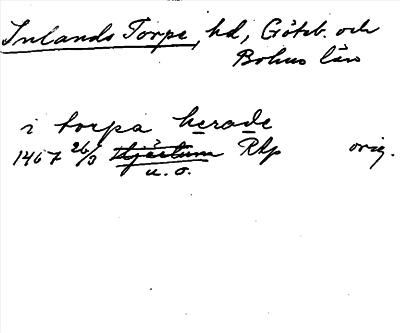 Inlands Torpe, hd, Göteb. och
Bohus län
i torpa herade
1467 26/3 Hjärtum Rlp orig.
u. o.